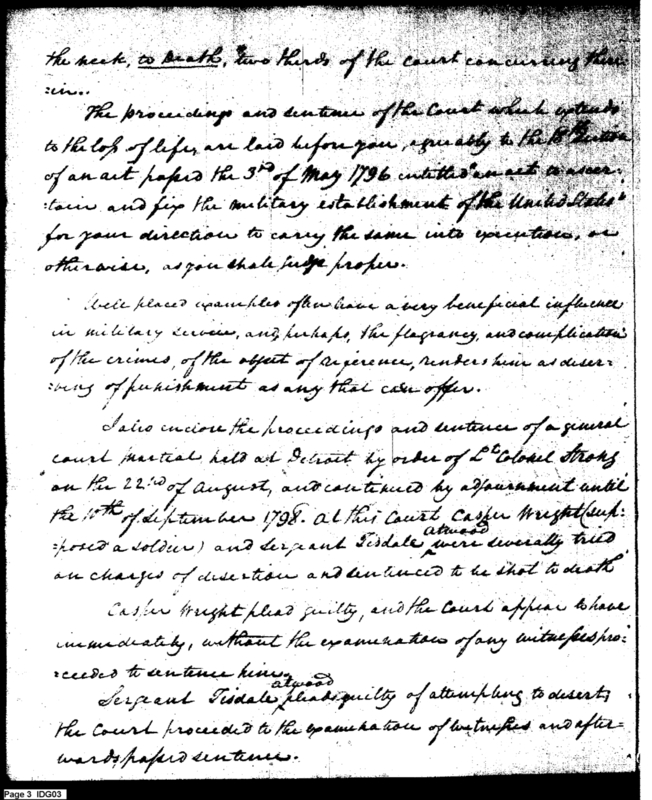 the neck, to Death, two thirds of the Court concurring there
=in..
The proceedings and sentence of the Court which extends
to the loss of life, are laid before you, agreeably to the 18th section
of an act passed the 3rd of May 1796 intitled "an act to ascer-
=tain and fix the military establishment of the United States"
for your direction to carry the same into execution, or
otherwise, as you shall judge proper.
Well placed examples often have a very beneficial influence
in military service, and, perhaps, the flagrancy, and complication
of the crimes, of the object of reference, renders him as deser-
=ving of punishment as any that can offer.
I also inclose the proceedings and sentence of a general
court martial held at Detroit by order of Lt Colonel Strong
on the 22nd of August, and continued by adjournment until
the 10th of September 1798. At this Court Casper Wright (sup-
=posed a soldier) and Sergeant Tisdale
atwood
were severally tried
on charges of desertion and sentenced to be shot to death
Casper Wright plead guilty, and the Court appear to have
immediately, without the examination of any witnesses pro-
=ceeded to sentence him.
Sergeant Tisdale
atwood
pleads guilty of attempting to desert,
the Court proceeded to the examination of witnesses and after-
wards, passed sentence.
Page 3 IDG03